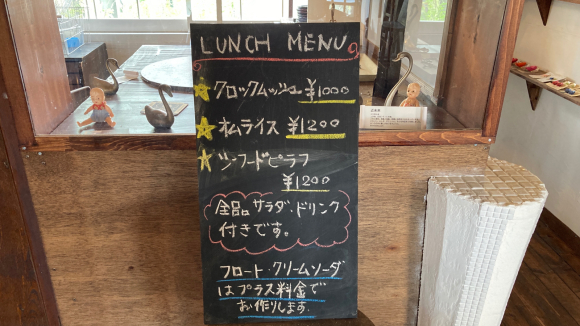 LUNCH MENU
クロックムッシュ ¥1000
オムライス ¥1200
シーフードピラフ
¥1200
全品サラダ、ドリンク
付きです。
フロート・クリームソーダ
はプラス料金で
お作りします